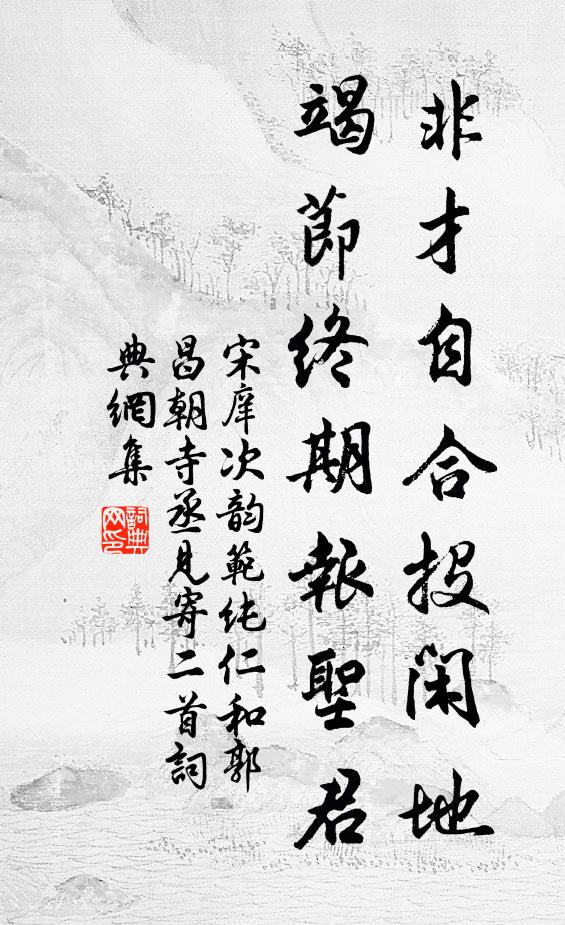 非才自合投閑地
竭節終期報聖君
宋庠次韵範纯仁和郭
昌朝寺丞見寄二首詞
典網集
詞典网印